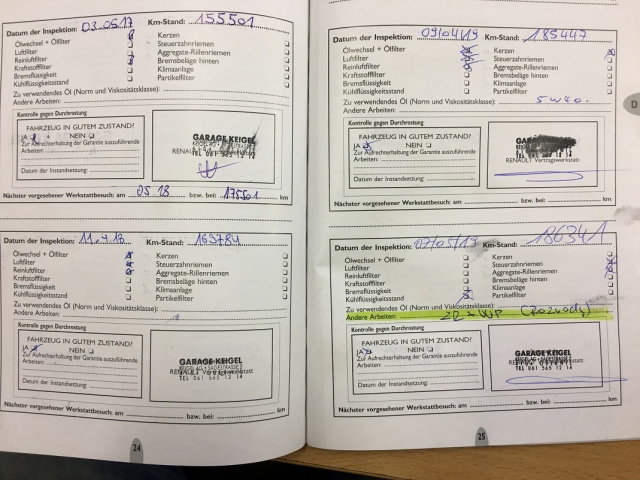 Datum der Inspektion: 03.05.17 Km-Stand: 155501
Ölwechsel + Ölfilter Kerzen
Luftfilter Steuerzahnriemen
Reinluftfilter Aggregate-Rillenriemen
Kraftstofffilter Bremsbeläge hinten
Bremsflüssigkeit Klimaanlage
Kühlflüssigkeitsstand Partikelfilter
Zu verwendendes Öl (Norm und Viskositätsklasse):
Andere Arbeiten:
Kontrolle gegen Durchrostung
FAHRZEUG IN GUTEM ZUSTAND?
JA NEIN
Zur Aufrechterhaltung der Garantie auszuführende
Arbeiten:
Datum der Instandsetzung:
GARAGE KEIGEL
RENAULT Vertragswerkstatt
TEL 061 565 12 14
Nächster vorgesehener Werkstattbesuch: am 05.18 bzw. bei: 175501 km
Datum der Inspektion: 11.4.18 Km-Stand: 169784
Ölwechsel + Ölfilter Kerzen
Luftfilter Steuerzahnriemen
Reinluftfilter Aggregate-Rillenriemen
Kraftstofffilter Bremsbeläge hinten
Bremsflüssigkeit Klimaanlage
Kühlflüssigkeitsstand Partikelfilter
Zu verwendendes Öl (Norm und Viskositätsklasse):
Andere Arbeiten:
Kontrolle gegen Durchrostung
FAHRZEUG IN GUTEM ZUSTAND?
JA NEIN
Zur Aufrechterhaltung der Garantie auszuführende
Arbeiten:
Datum der Instandsetzung:
GARAGE KEIGEL
KEIGEL AG
RENAULT Vertragswerkstatt
TEL 061 565 12 14
Nächster vorgesehener Werkstattbesuch: am bzw. bei: km
24
Datum der Inspektion: 09/04/19 Km-Stand: 185447
Ölwechsel + Ölfilter Kerzen
Luftfilter Steuerzahnriemen
Reinluftfilter Aggregate-Rillenriemen
Kraftstofffilter Bremsbeläge hinten
Bremsflüssigkeit Klimaanlage
Kühlflüssigkeitsstand Partikelfilter
Zu verwendendes Öl (Norm und Viskositätsklasse):
Andere Arbeiten: 5W40.
Kontrolle gegen Durchrostung
FAHRZEUG IN GUTEM ZUSTAND?
JA NEIN
Zur Aufrechterhaltung der Garantie auszuführende
Arbeiten:
Datum der Instandsetzung:
RENAULT Vertragswerkstatt
Nächster vorgesehener Werkstattbesuch: am bzw. bei: km
D
Datum der Inspektion: 07/05/19 Km-Stand: 186341
Ölwechsel + Ölfilter Kerzen
Luftfilter Steuerzahnriemen
Reinluftfilter Aggregate-Rillenriemen
Kraftstofffilter Bremsbeläge hinten
Bremsflüssigkeit Klimaanlage
Kühlflüssigkeitsstand Partikelfilter
Zu verwendendes Öl (Norm und Viskositätsklasse):
Andere Arbeiten: ZR + WP
Kontrolle gegen Durchrostung
FAHRZEUG IN GUTEM ZUSTAND?
JA NEIN
Zur Aufrechterhaltung der Garantie auszuführende
Arbeiten:
Datum der Instandsetzung:
GARAGE KEIGEL
RENAULT Vertragswerkstatt
TEL 061 565 12 14
Nächster vorgesehener Werkstattbesuch: am bzw. bei: km
25